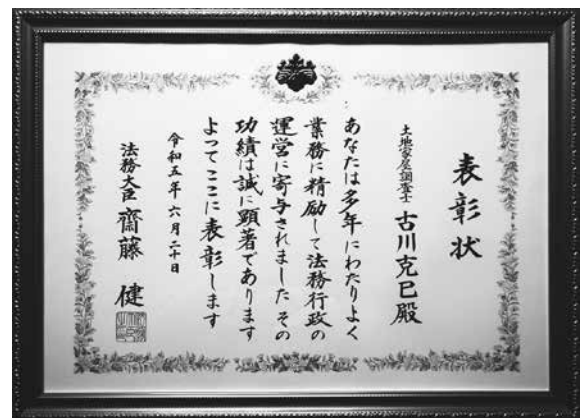 表彰状
土地家屋調査士 古川克巳殿
あなたは多年にわたりよく
業務に精励して法務行政の
運営に寄与されました その
功績は誠に顕著であります
よってここに表彰します
令和五年六月二十日
法務大臣 齋藤 健